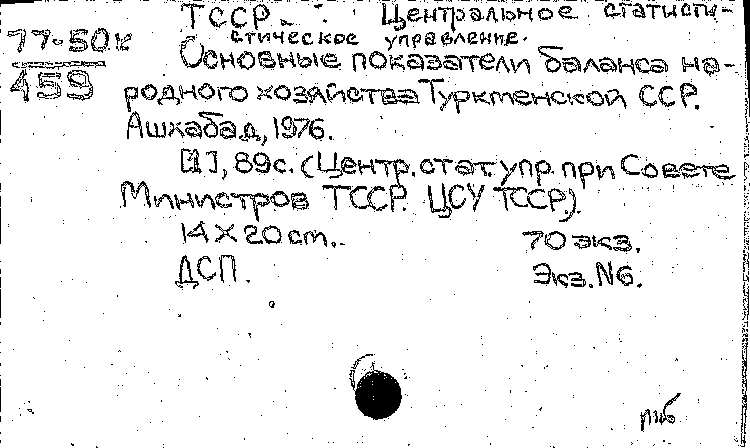 ТССР. Центральное статисти-
стическое управление.
77-50к
459
Основные показатели баланса на-
родного хозяйства Туркменской ССР.
Ашхабад, 1976.
[1], 89с. (Центр. стат. упр. при Совете
Министров ТССР. ЦСУ ТССР).
14 X 20 cm. 70 экз.
ДСП. Экз. N6.